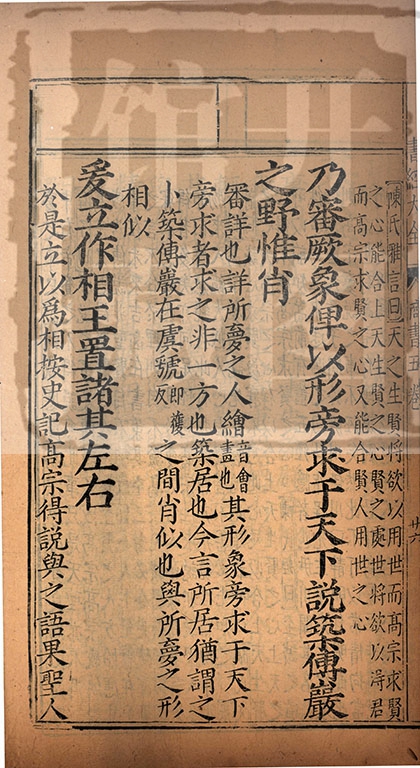 陳氏雅言曰天之生賢將欲以用世而高宗求賢
之心能合上天生賢之心賢之處世將欲以淂君
而高宗求賢之心又能合賢人用世之心
乃審厥象俾以形旁求于天下說築傅巖
之野惟肖
審詳也詳所夢之人繪音會畫也其形象旁求于天下
旁求者求之非一方也築居也今言所居猶謂之
卜築傅巖在虞虢即獲反之間肖似也與所夢之形
相似
爰立作相王置諸其左右
於是立以爲相按史記高宗得説與之語果聖人
廿六